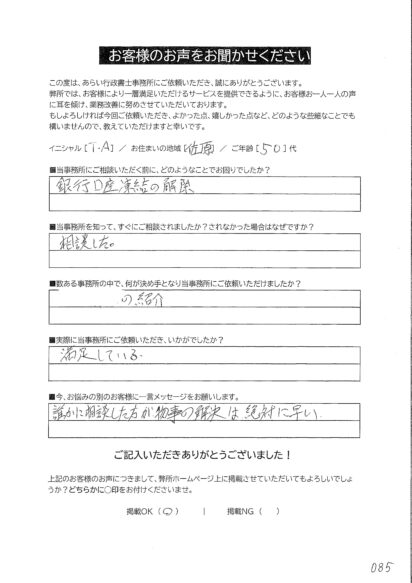 お客様のお声をお聞かせください
この度は、あらい行政書士事務所にご依頼いただき、誠にありがとうございます。
弊所では、お客様により一層満足いただけるサービスを提供できるように、お客様お一人一人の声
に耳を傾け、業務改善に努めさせていただいております。
もしよろしければ今回ご依頼いただき、よかった点、嬉しかった点など、どのような些細なことでも
構いませんので、教えていただけますと幸いです。
イニシャル[T.A] / お住まいの地域[佐原] / ご年齢[50]代
■当事務所にご相談いただく前に、どのようなことでお困りでしたか?
銀行口座凍結の解除
■当事務所を知って、すぐにご相談されましたか?されなかった場合はなぜですか?
相談した。
■数ある事務所の中で、何が決め手となり当事務所にご依頼いただけましたか?
の紹介
■実際に当事務所にご依頼いただき、いかがでしたか?
満足している.
■今、お悩みの別のお客様に一言メッセージをお願いします。
誰かに相談した方が物事の解決は絶対に早い
ご記入いただきありがとうございました!
上記のお客様のお声につきまして、弊所ホームページ上に掲載させていただいてもよろしいでしょ
うか?どちらかに○印をお付けくださいませ。
掲載OK (○) | 掲載NG ( )
085